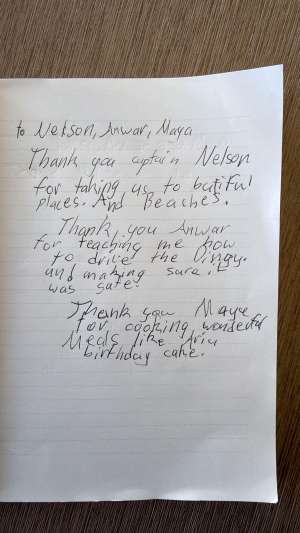 to Nelson, Anwar, Maya
Thank you captain Nelson
for taking us to butiful
places. And Beaches.
Thank you Anwar
for teaching me how
to drive the Dingy.
and making sure it
was safe.
Thank you Maya
for cooking wonderful
Meals like Aria
birthday cake.